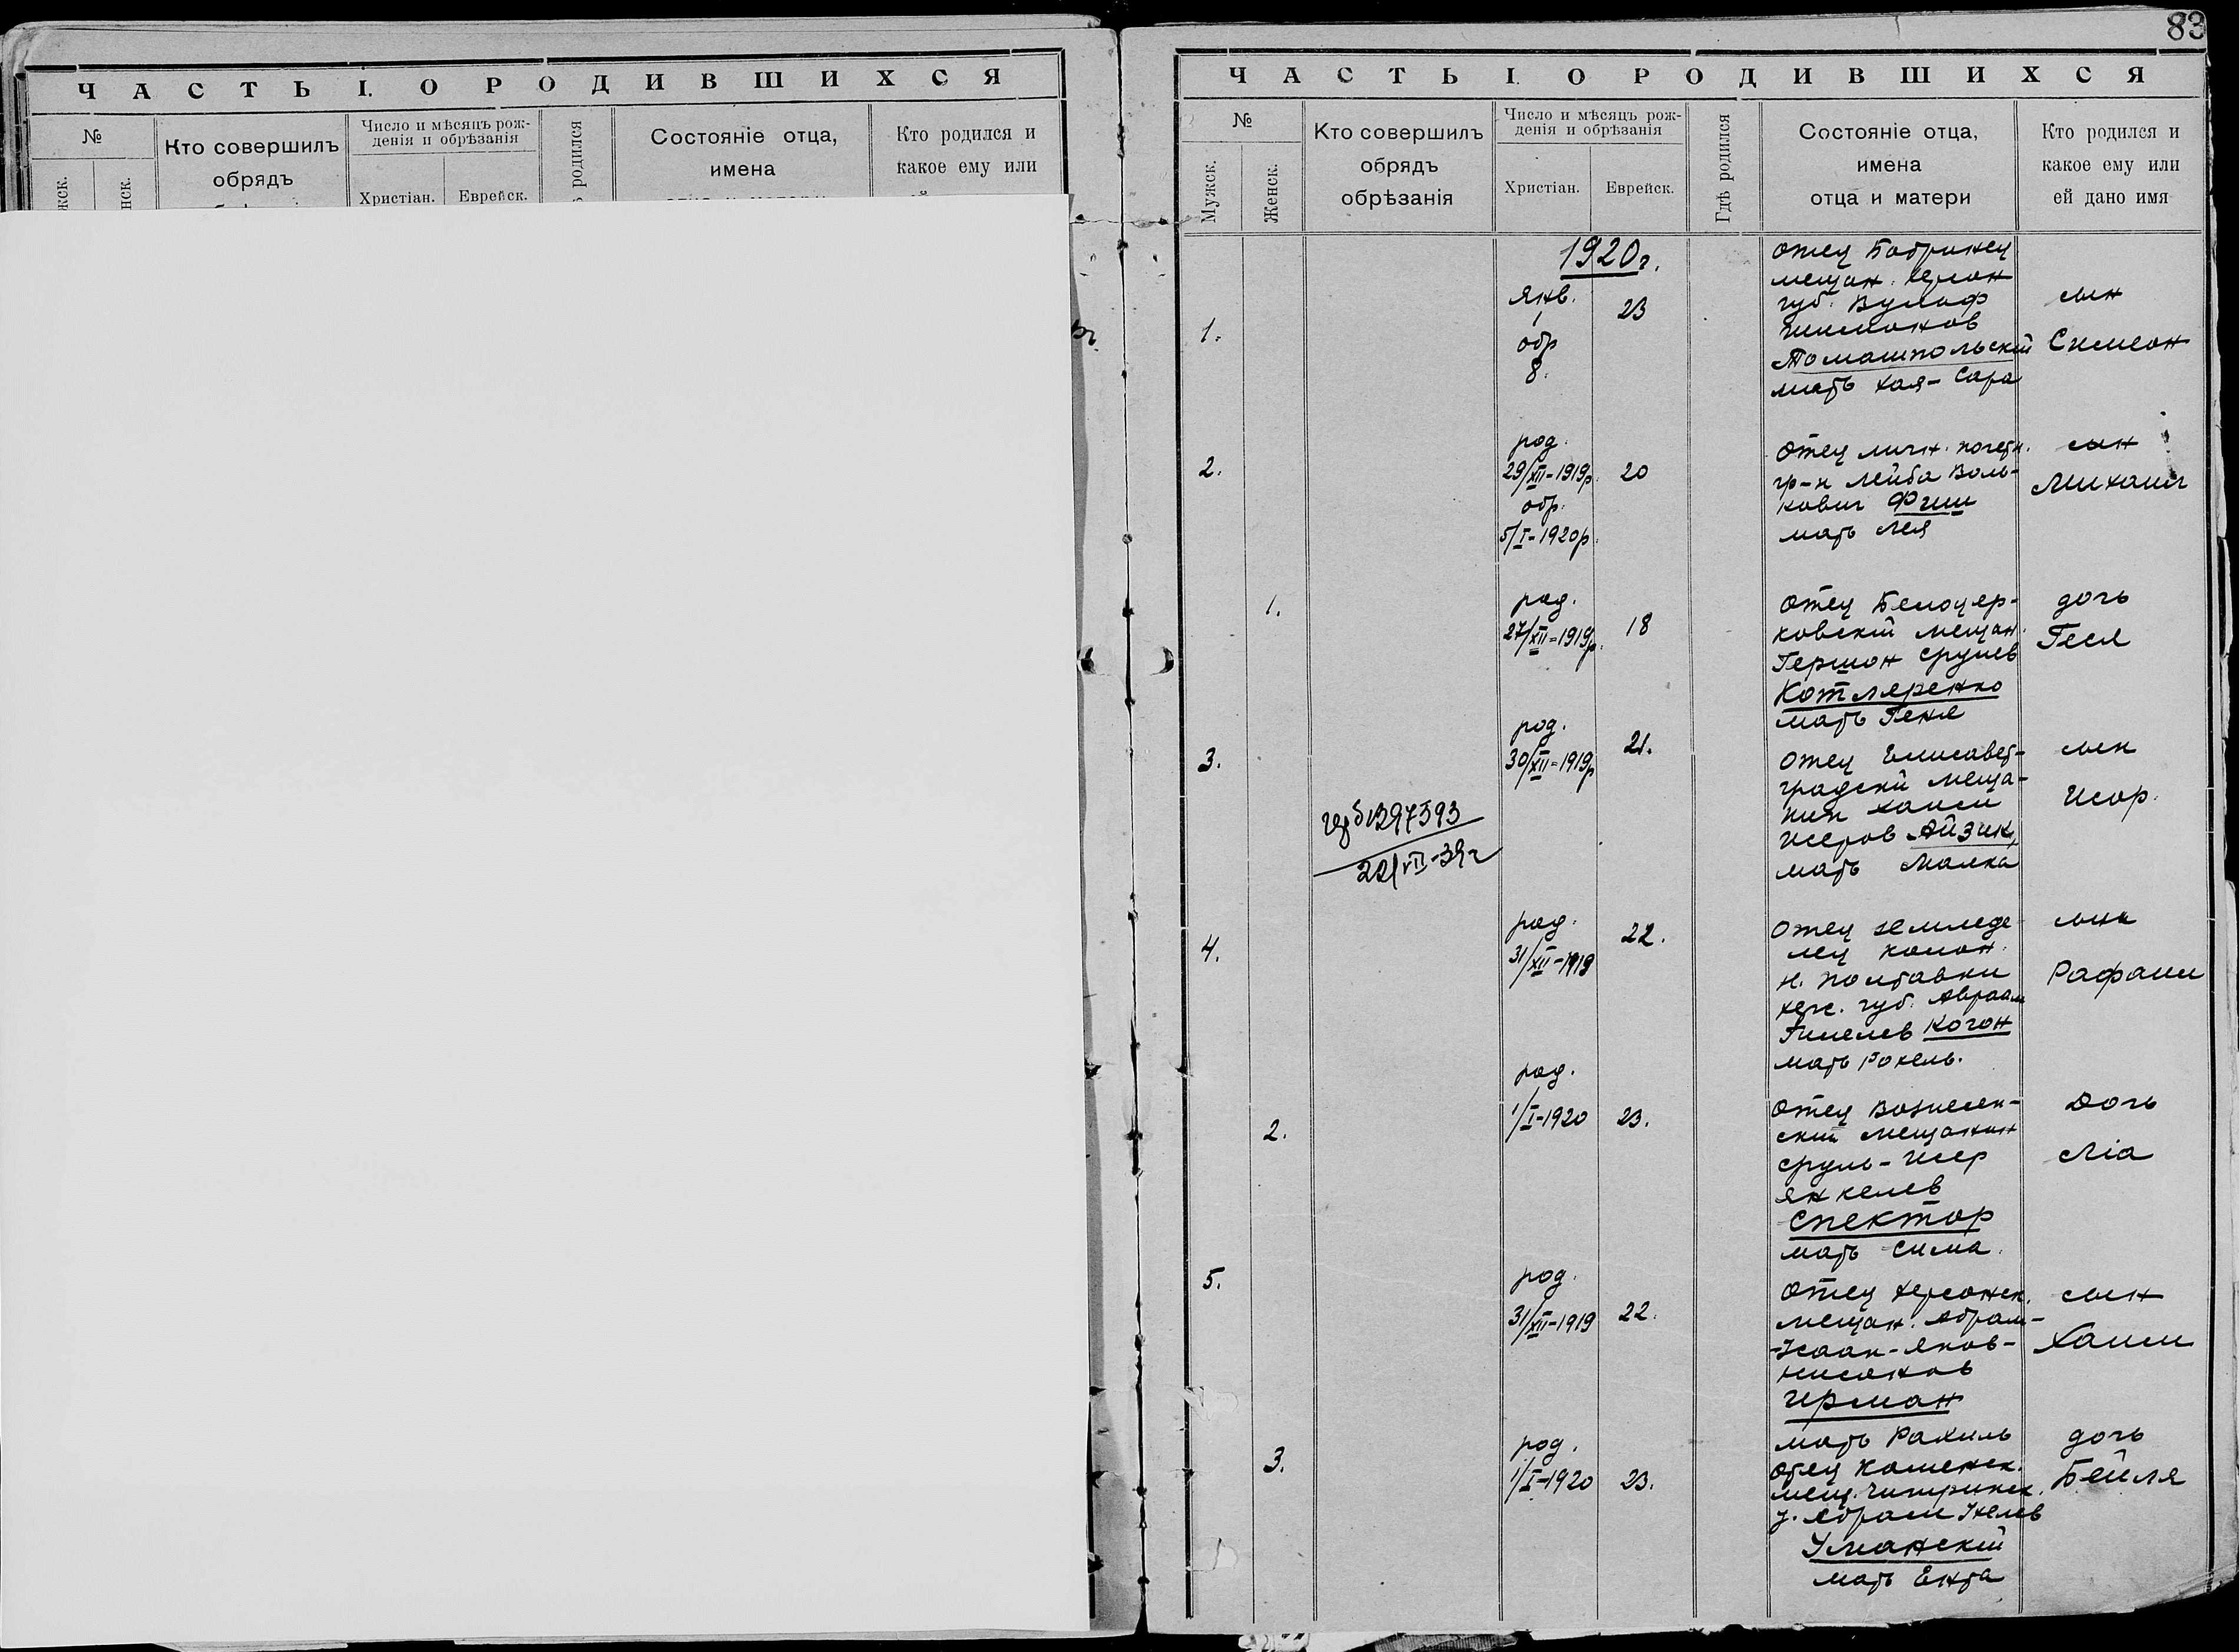 ЧАСТЬ I. О РОДИВШИХСЯ
№
Кто совершилъ
обрядъ
Число и мѣсяцъ рож-
денія и обрѣзанія
Христіан.
Еврейск.
родился
Состояніе отца,
имена
Кто родился и
какое ему или
83
ЧАСТЬ I. О РОДИВШИХСЯ
№
Мужск.
Женск.
Кто совершилъ
обрядъ
обрѣзанія
Число и мѣсяцъ рож-
денія и обрѣзанія
Христіан.
Еврейск.
Гдѣ родился
Состояніе отца,
имена
отца и матери
Кто родился и
какое ему или
ей дано имя
1920 г.
1.
янв.
1
обр
8.
23
отец Бобринец
мещан. Херсон
губ. Вульф
Шимонов
Томашпольскій
мать Хая-Сара
сын
Симеон
2.
род.
29/XII-1919р.
обр.
5/I-1920р.
20
Отец личн. почетн.
гр-н Лейба Воль-
кович Фиш
мать Лея
сын
Михаил
1.
род.
27/XII-1919р.
18
Отец Белоцер-
ковскій мещан.
Гершон Срулев
Котляренко
мать Геня
дочь
Геся
3.
21397593
22/VII-39г
род.
30/XII-1919р
21.
Отец Елисавет-
градскій меща-
нин Хаим
Исеров Айзик,
мать Малка
сын
Исор.
4.
род.
31/XII-1919
22.
Отец земледе-
лец колон.
н. Полтавки
херс. губ. Авраам
Гилелев Коган
мать Рохель.
сын
Рафаил
2.
род.
1/I-1920
23.
Отец Вознесен-
скій мещанин
Сруль-Исер
Янкелев
Спектор
мать Сима.
Дочь
Лія
5.
род.
31/XII-1919
22.
Отец Херсонск.
мещан. Абрам-
-Исаак-Яков-
Нисонов
Герман
мать Рахиль
сын
Хаим
3.
род.
1/I-1920
23.
Отец Каменск.
мещ. Чигиринск.
у. Абрам Ицков
Уманскій
мать Ента
дочь
Бейля